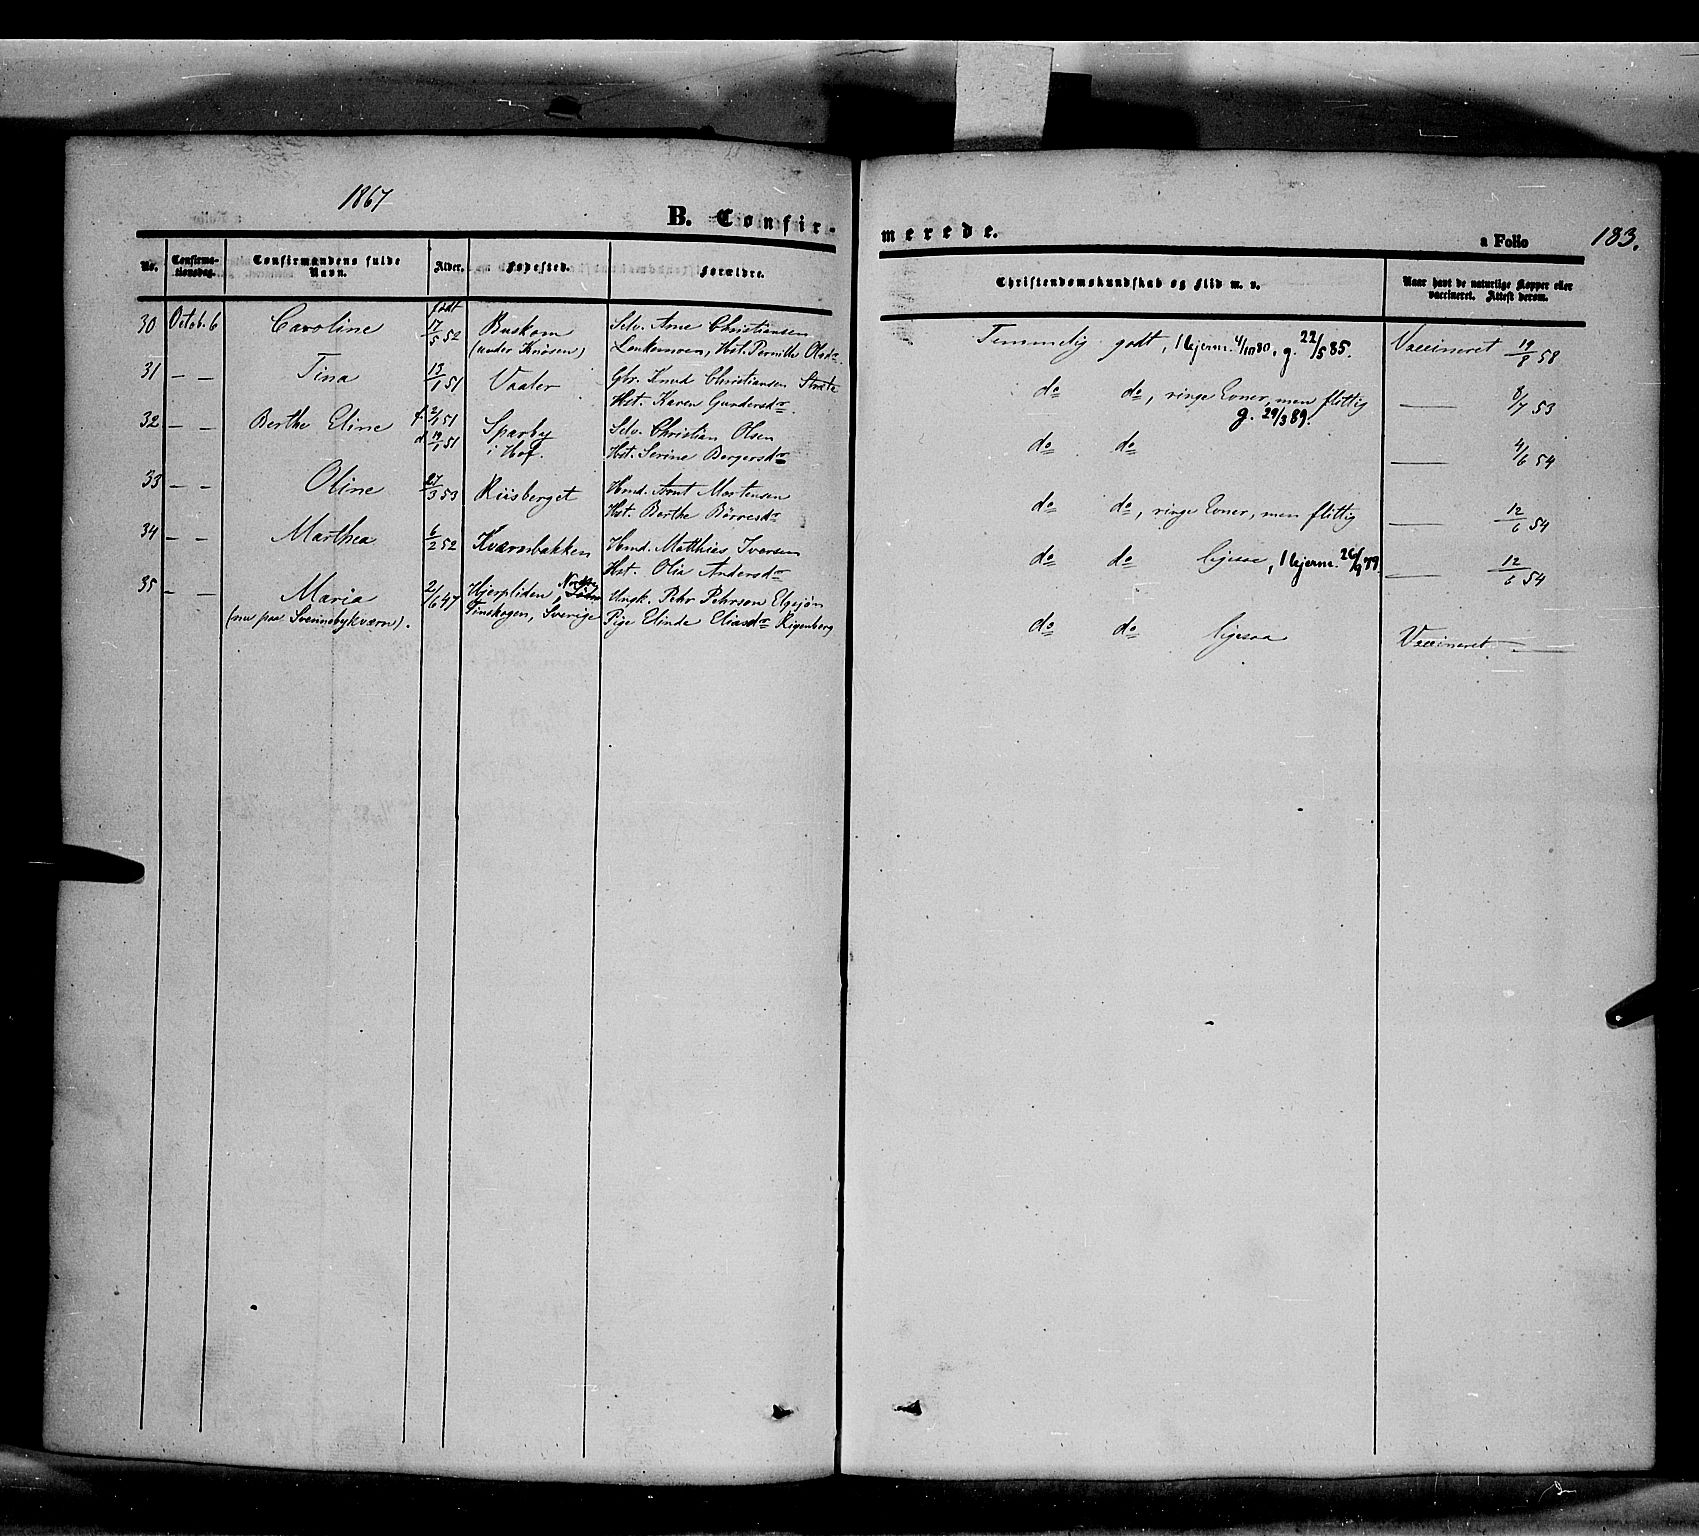 1867
B. Confirmerede.
a Folio 183.
No. Confirmationsdag. Confirmandens fulde Navn. Alder. Fødested. Forældre. Christendomskundskab og Flid m. v. Naar havt de naturlige Kopper eller vaccineret. Attest derom.
født
30 Octob. 6 Caroline 17/5 52 Buskom Selv. Arne Christiansen Temmelig godt, 4/10 80, g. 22/5 85. Vaccineret 19/8 58
(under Knøsen) Hst. Pernille Olsdr
31 — — Tina 13/1 51 Vaaler Gbr. Knud Christiansen do do, ringe Evner, men flittig — 8/7 53
Hst. Karen Gundersdr. g. 29/3 89.
32 — — Berthe Eline f. 2/1 51 Sparby Selv. Christian Olsen do do — 4/6 54
d 19/1 51 i Hof. Hst. Serine Bergersdr
33 — — Oline 27/3 53 Riisberget Hmd. Arnt Mortensen do do, ringe Evner, men flittig — 12/6 54
Hst. Berthe Børresdr
34 — — Marthea 6/2 52 Kværnbakken Hmd. Matthias Iversen do do ligesaa, — 12/6 54
Hst. Olia Andersdr
35 — — Maria 2/6 47 Hjerpliden Ungk. Pehr Pehrson Elgsjön do do ligesaa Vaccineret —
(nu paa Svennebykværn). Finskogen, Sverige Pige Elinde Eliasdr Rigenberg